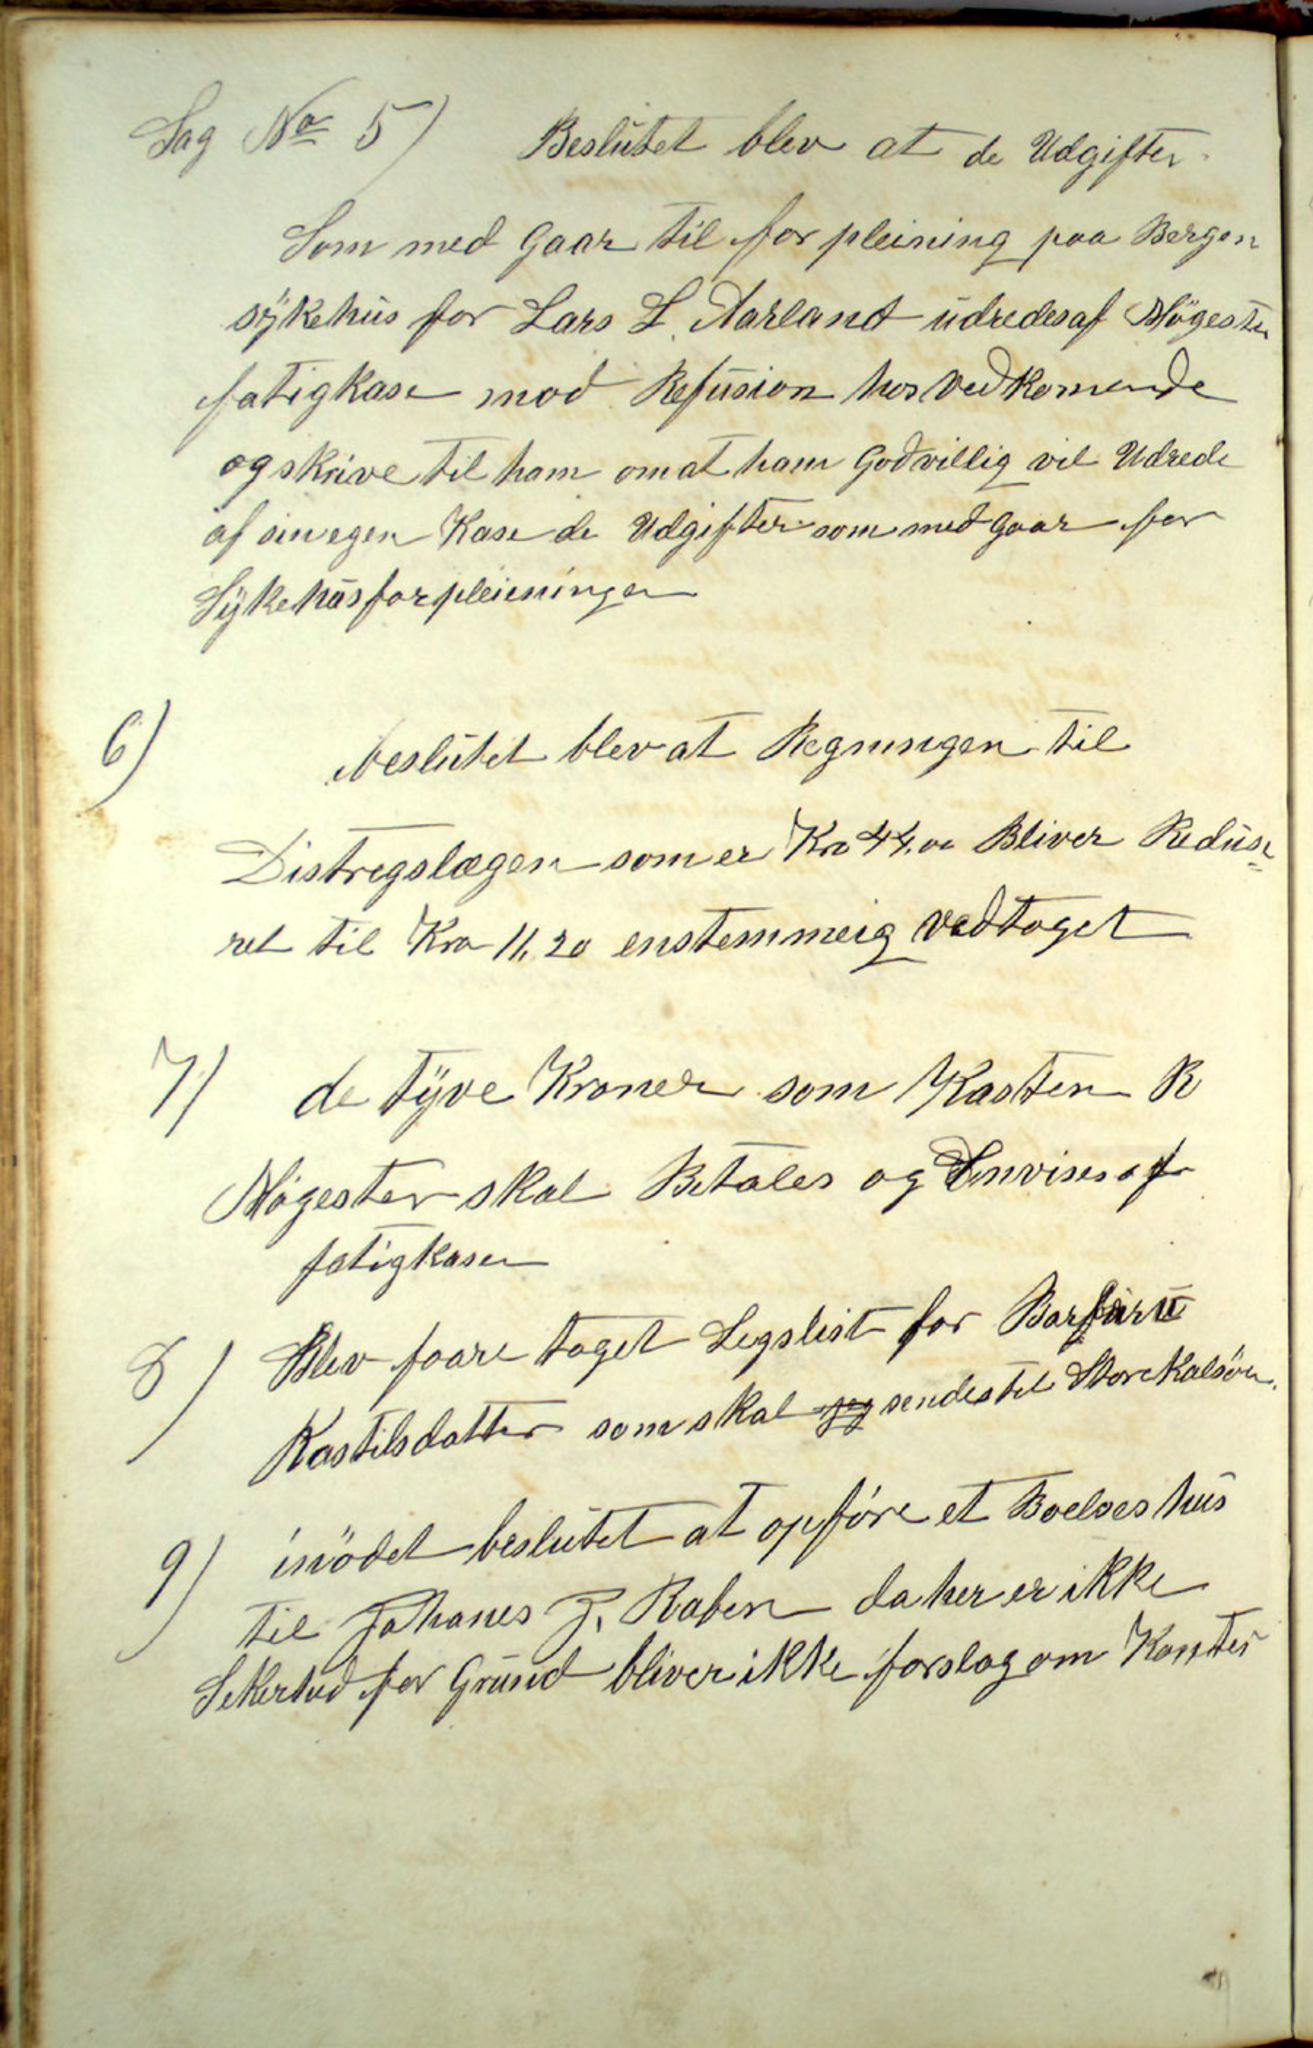 Sag No 5) Beslutet blev at de Udgifter
Som med Gaar til for pleining paa Bergen
sykehus for Lars L. Aarland udredes af Møgester
fatigkase mod Refusion hos vedkomende
og skrive til ham om at ham Godvillig vil Udrede
af sin egen Kase de Udgifter som med gaar for
Sykehusforpleiningen
6) beslutet blev at Regningen til
Distregslægen som er Kro 44,00 Bliver Reduse
ret til Kro 11,20 enstemmeig vedtaget
7) de tyve Kroner som Kasten R
Møgester skal Betales og Anvises af
fatigkasen
8) Blev foore taget Legslist for Barfaru
Rastilsdatter som skal sendes til Store Kalsøen.
9) i mødet beslutet at opføre et Boelses hus
til Johanes J. Raben da her er ikke
Sikerhed for Grund bliver ikke forslag om